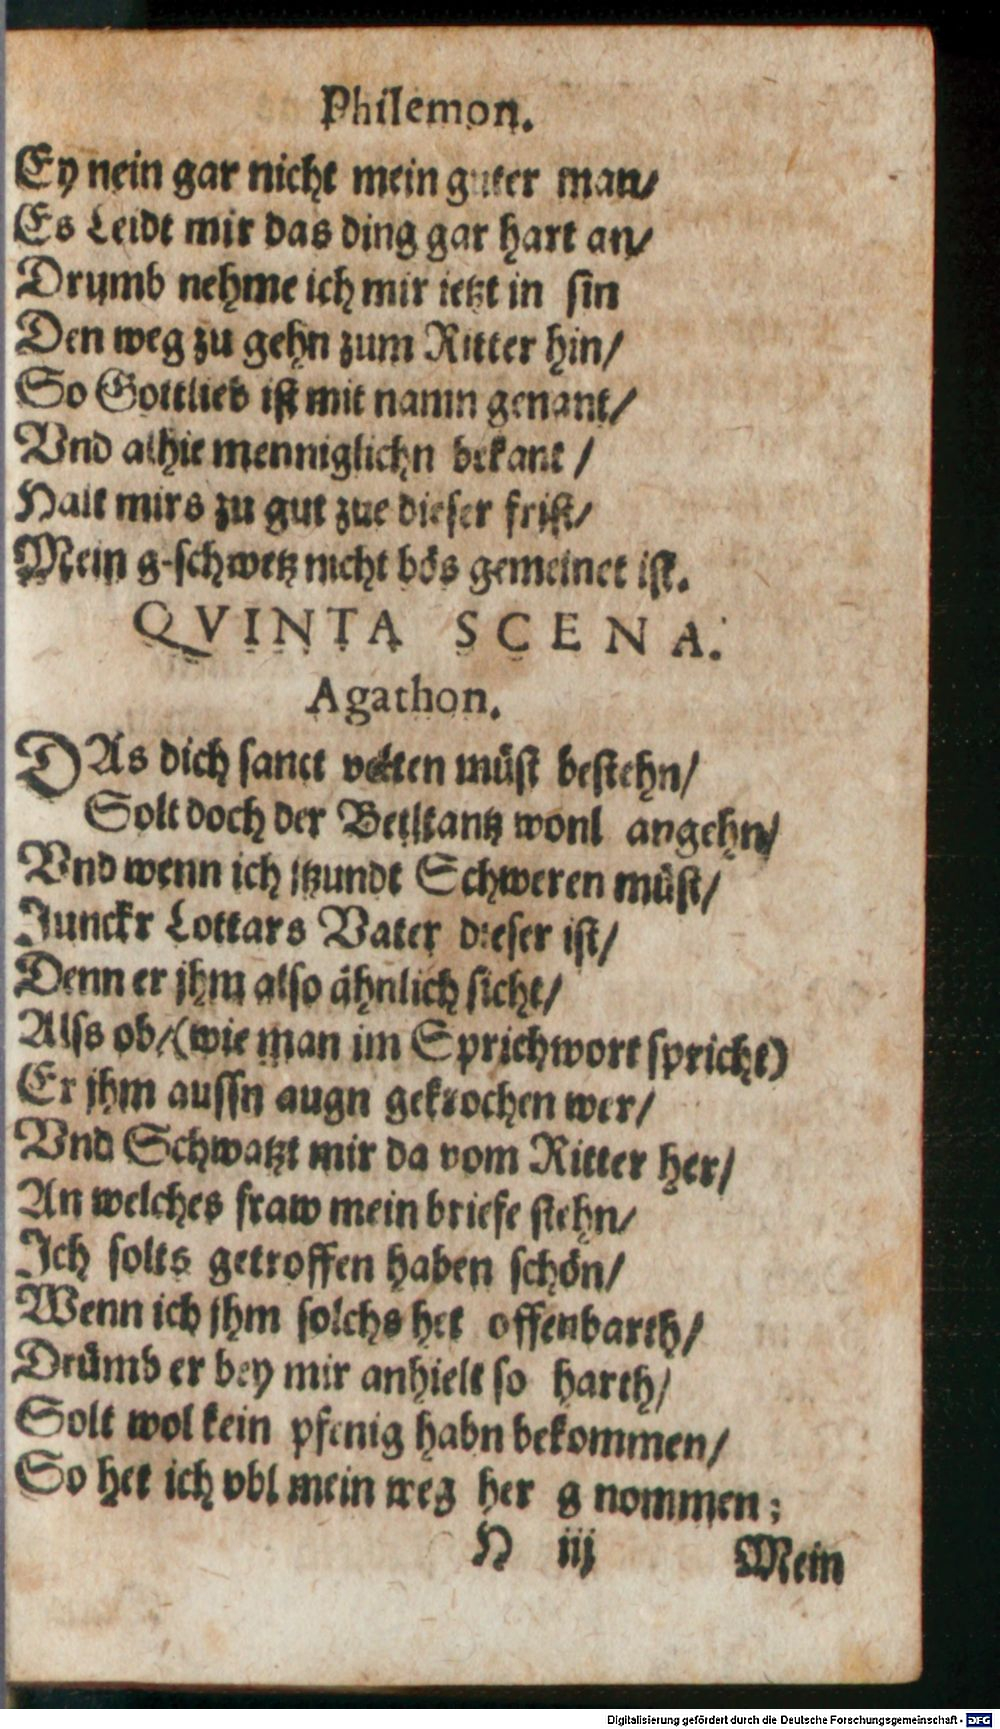 Philemon.
Ey nein gar nicht mein guter man/
Es Leidt mir das ding gar hart an/
Drumb nehme ich mir ietzt in sin
Den weg zu gehn zum Ritter hin/
So Gottlieb ist mit namn genant/
Vnd alhie menniglichn bekant /
Halt mirs zu gut zue dieser frist/
Mein g-schwetz nicht bös gemeinet ist.
QVINTA SCENA.
Agathon.
DAs dich sanct velten müst bestehn/
Solt doch der Betltantz wonl angehn/
Vnd wenn ich itzundt Schweren müst/
Junckr Lottars Vater dieser ist/
Denn er jhm also ähnlich sicht/
Alss ob/(wie man im Sprichwort spricht)
Er jhm aussn augn gekrochen wer/
Vnd Schwatzt mir da vom Ritter her/
An welches fraw mein briefe stehn/
Ich solts getroffen haben schön/
Wenn ich jhm solchs het offenbarth/
Drümb er bey mir anhielt so harth/
Solt wol kein pfenig habn bekommen/
So het ich vbl mein weg her g nommen;
H iij Mein
Digitalisierung gefördert durch die Deutsche Forschungsgemeinschaft - DFG